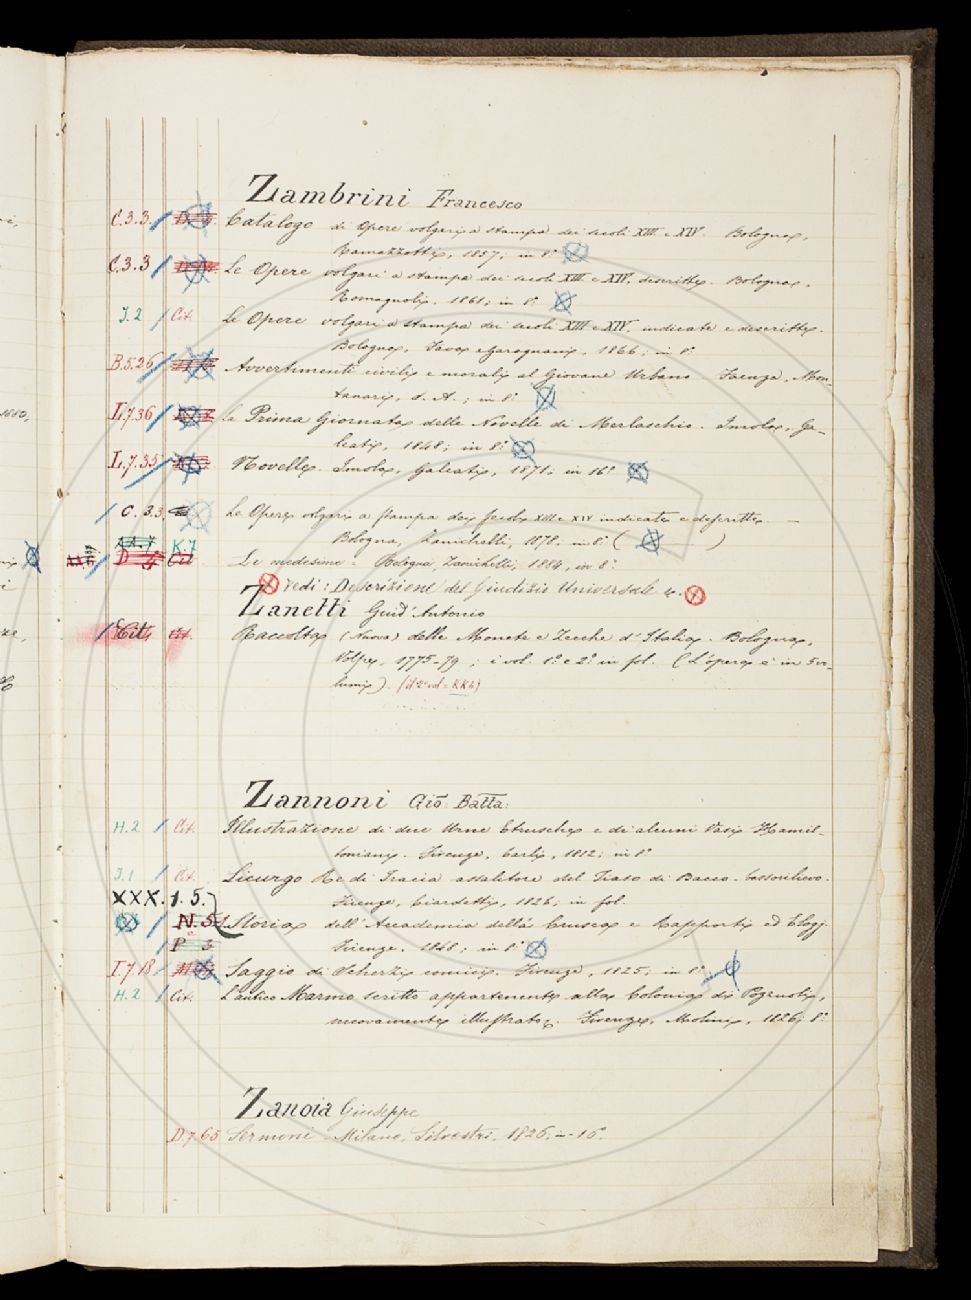 Zambrini Francesco
C.3.3. Catalogo di Opere volgari a stampa dei secoli XIII e XIV. Bologna,
Ramazzotti, 1857; in 8º
C.3.3 Le Opere volgari a stampa dei secoli XIII e XIV, descritte. Bologna,
Romagnoli, 1861; in 8º
J.2 Cit. Le Opere volgari a stampa dei secoli XIII e XIV, indicate e descritte.
Bologna, Fava e Garagnani, 1866; in 8º
B.5.26 Avvertimenti civili e morali al Giovane Urbano Faenza, Mon-
tanari, s. A.; in 8º
L.7.36 La Prima Giornata delle Novelle di Merlaschio. Imola, Ga-
leati, 1848; in 8º
L.7.35 Novelle. Imola, Galeati, 1871; in 16º
C.3.3. Le Opere volgari a stampa dei secoli XIII e XIV indicate e descritte
Bologna, Zanichelli, 1878. in 8º ( )
K.7
D 4 Cit Le medesime. Bologna Zanichelli, 1884, in 8º
Vedi: Descrizione del Giudizio Universale
Zanetti Guid'Antonio
Cit. Cit. Raccolta (Nuova) delle Monete e Zecche d'Italia. Bologna,
Volpe, 1775-79; i vol. 1º e 2º in fol. (L'opera è in 5 vo-
lumi). (il 2º vol = KK6)
Zannoni Gio: Batta:
H.2 Cit. Illustrazione di due Urne Etrusche e di alcuni Vasi Hamil-
toniani. Firenze, Carli, 1812; in 8º
J.1 Cit. Licurgo Re di Tracia assalitore del Tiaso di Bacco. bassorilievo.
XXX.1.5. Firenze, Ciardetti, 1826; in fol.
N.51 Storia dell'Accademia della Crusca e Rapporti ed Elogj
P 3 Firenze, 1848; in 8º
I 7.18 Saggio di Scherzi comici. Firenze, 1825; in 8º
H.2 Cit. L'antico Marmo scritto appartenente alla Colonia di Pozzuoli,
nuovamente illustrato. Firenze, Molini, 1826; 8º
Zanoia Giuseppe
D.7.65 Sermoni. Milano, Silvestri, 1826, in-16º